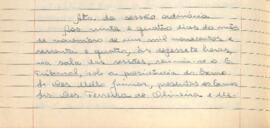 Ata da sessão ordinária
Aos vinte e quatro dias do mês
de novembro de um mil novecentos e
sessenta e quatro, às dezessete horas,
na sala das sessões, reuniu-se o E.
Tribunal, sob a presidência do Exmo.
Sr. Des. Mello Júnior, presentes os Exmos.
Srs. Des. Ferreira de Oliveira e